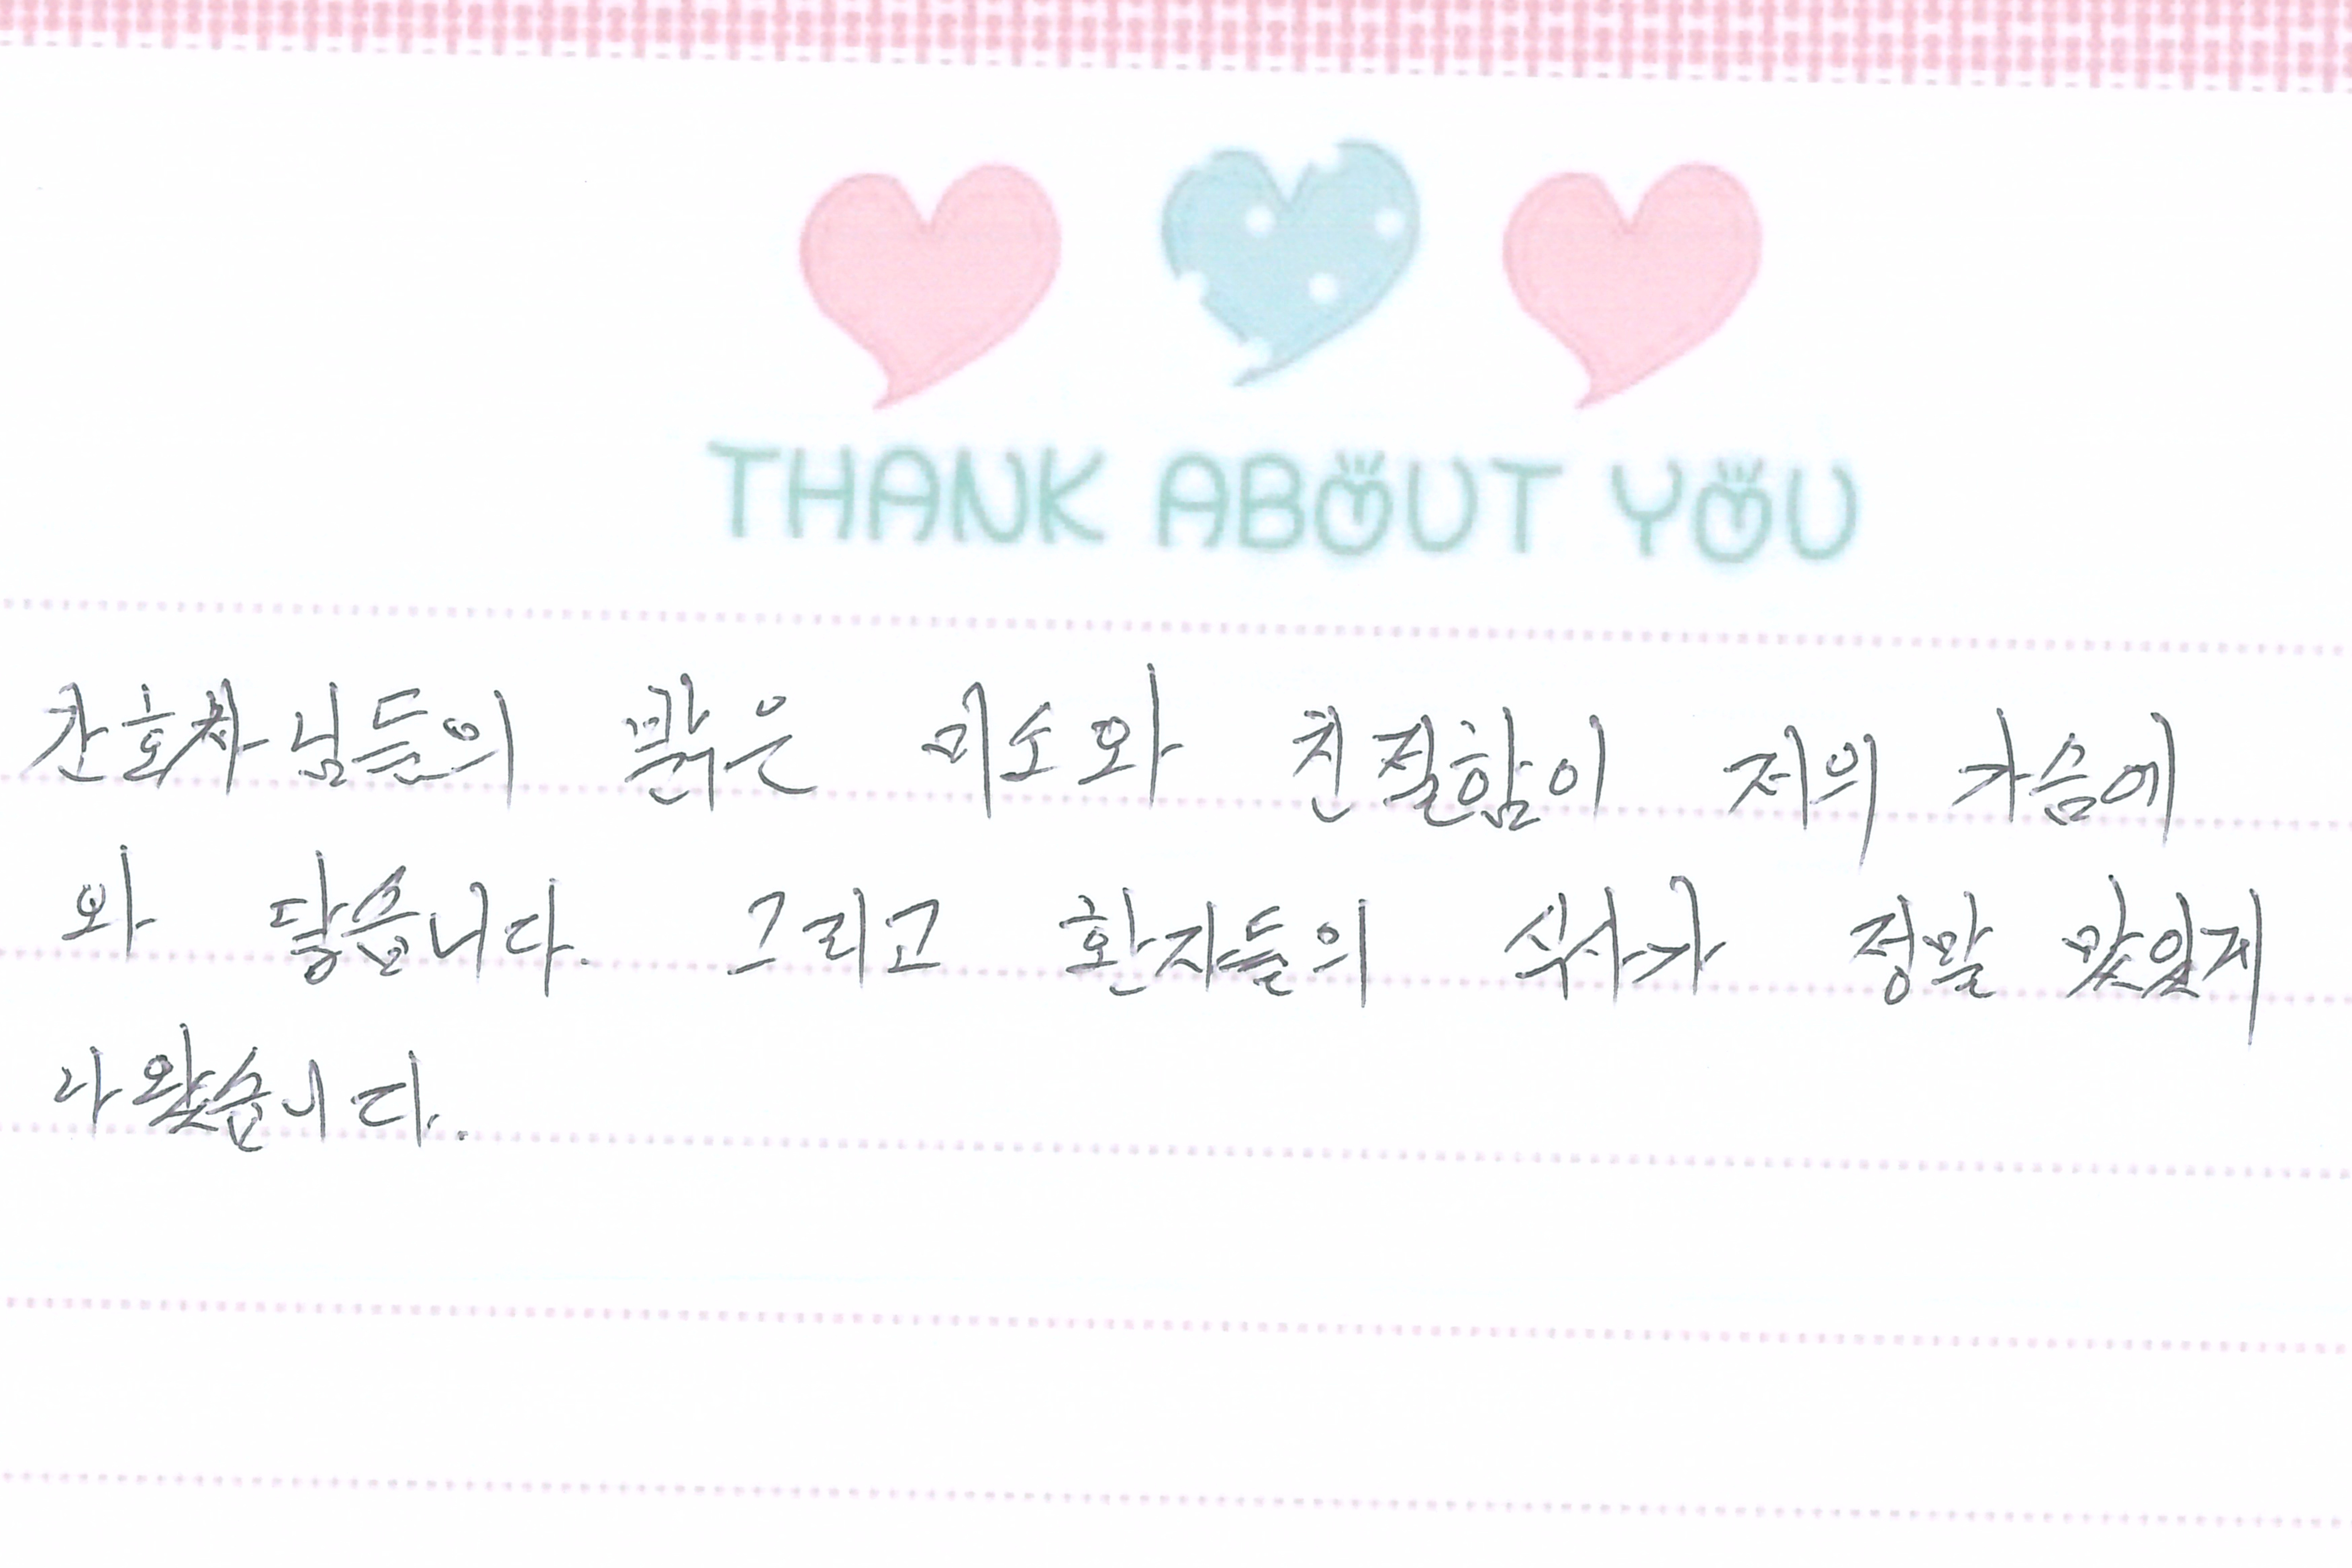 THANK ABOUT YOU
간호사님들의 밝은 미소와 친절함이 저의 가슴에
와 닿습니다. 그리고 환자들의 식사가 정말 맛있게
나왔습니다.